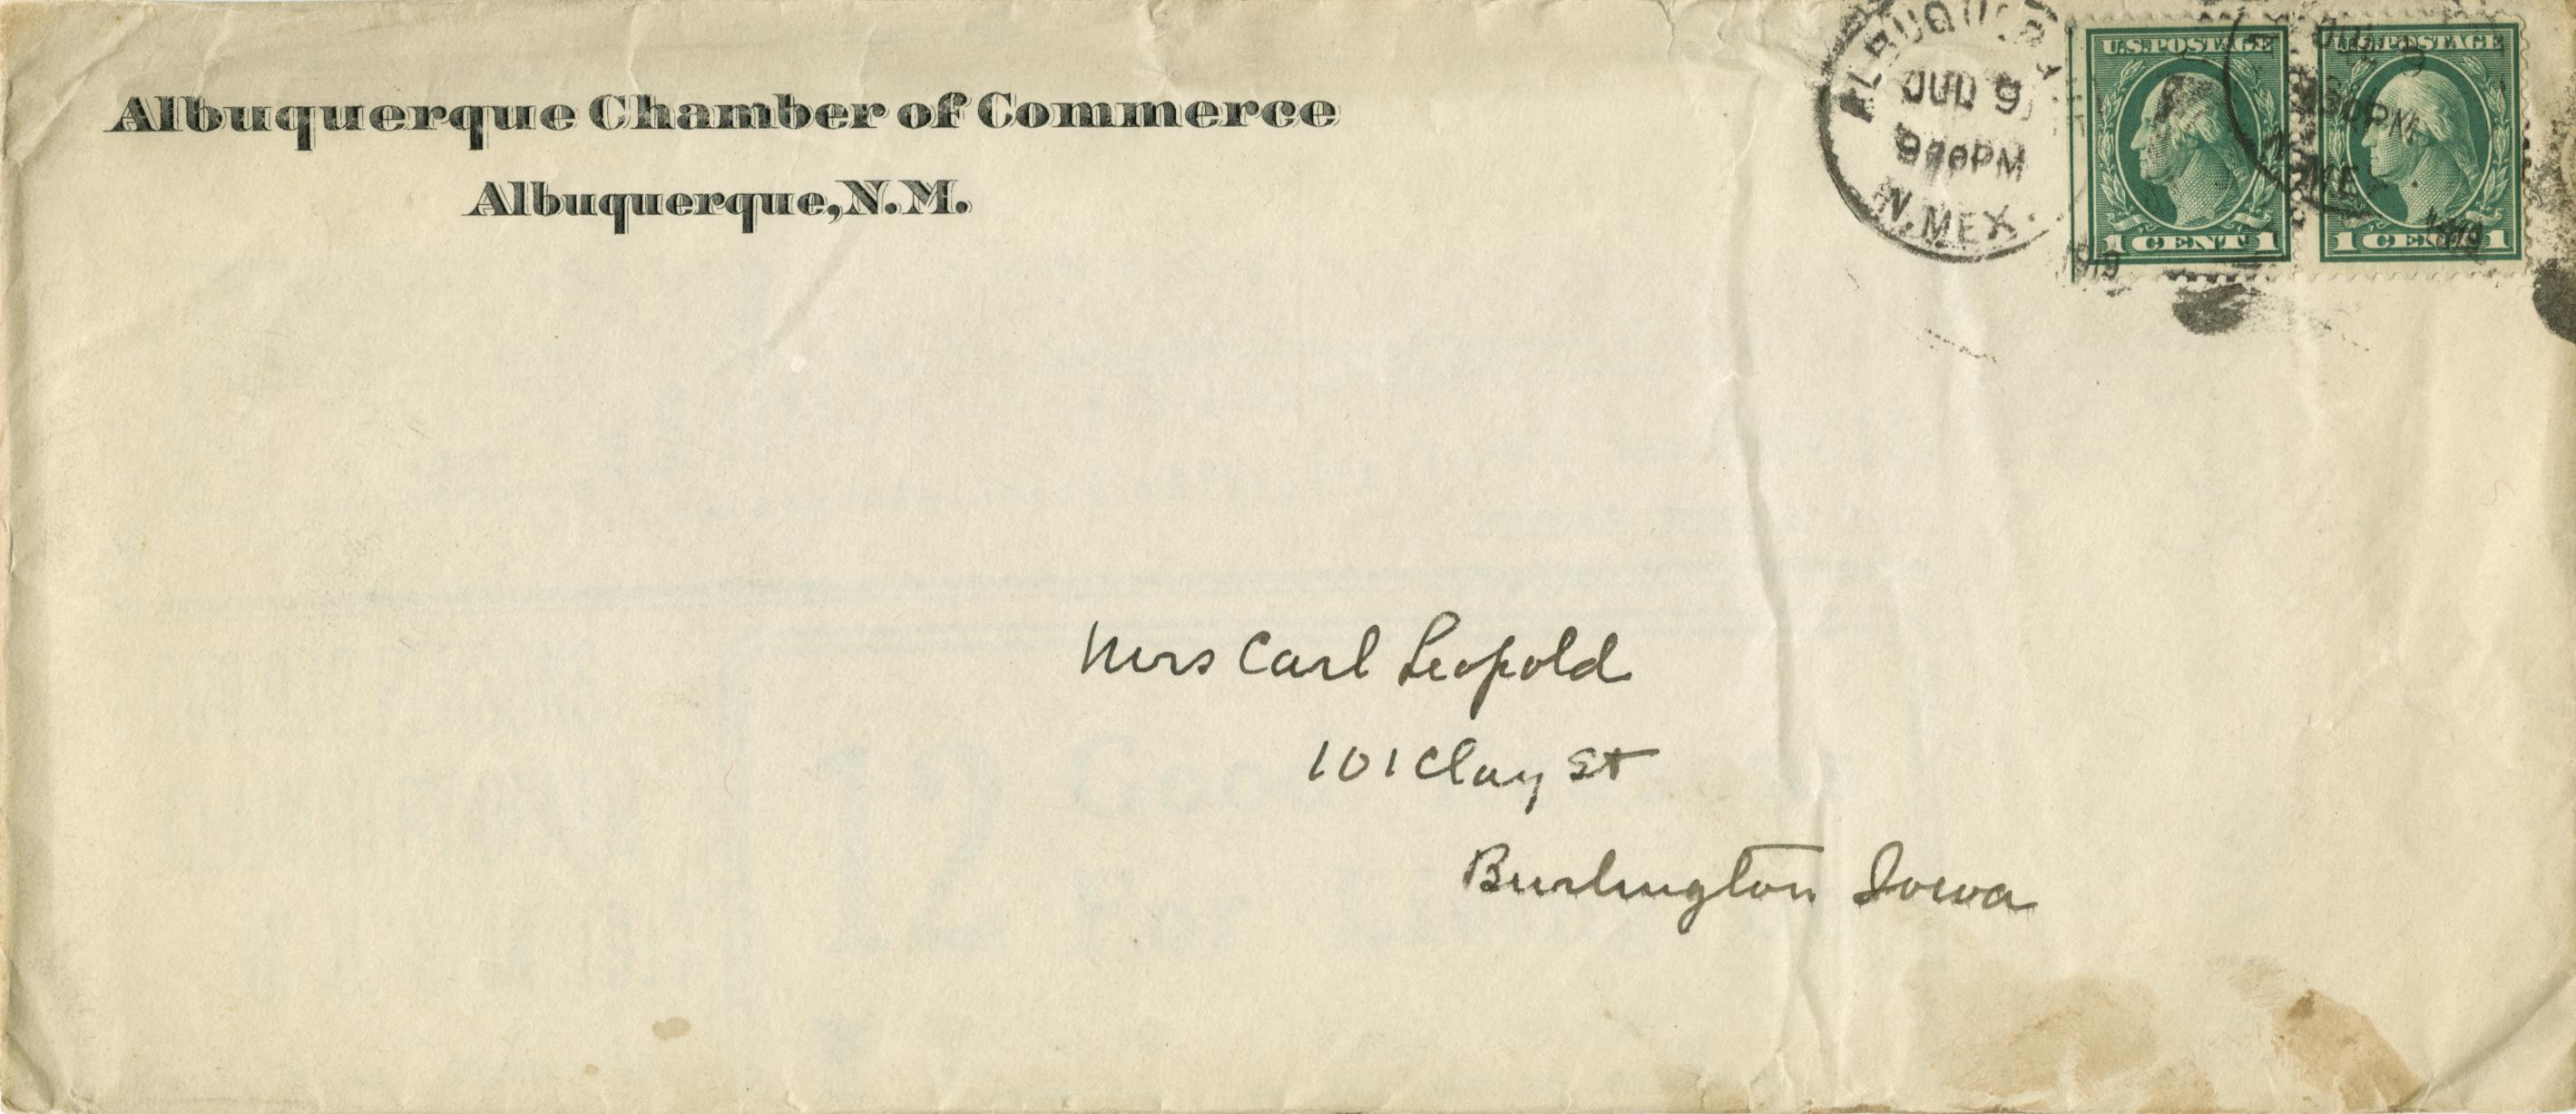 Albuquerque Chamber of Commerce
Albuquerque, N.M.
N. MEX.
1919
U.S. POSTAGE
1 CENT 1
U.S. POSTAGE
1 CENT 1
Mrs Carl Leopold
101 Clay St
Burlington Iowa